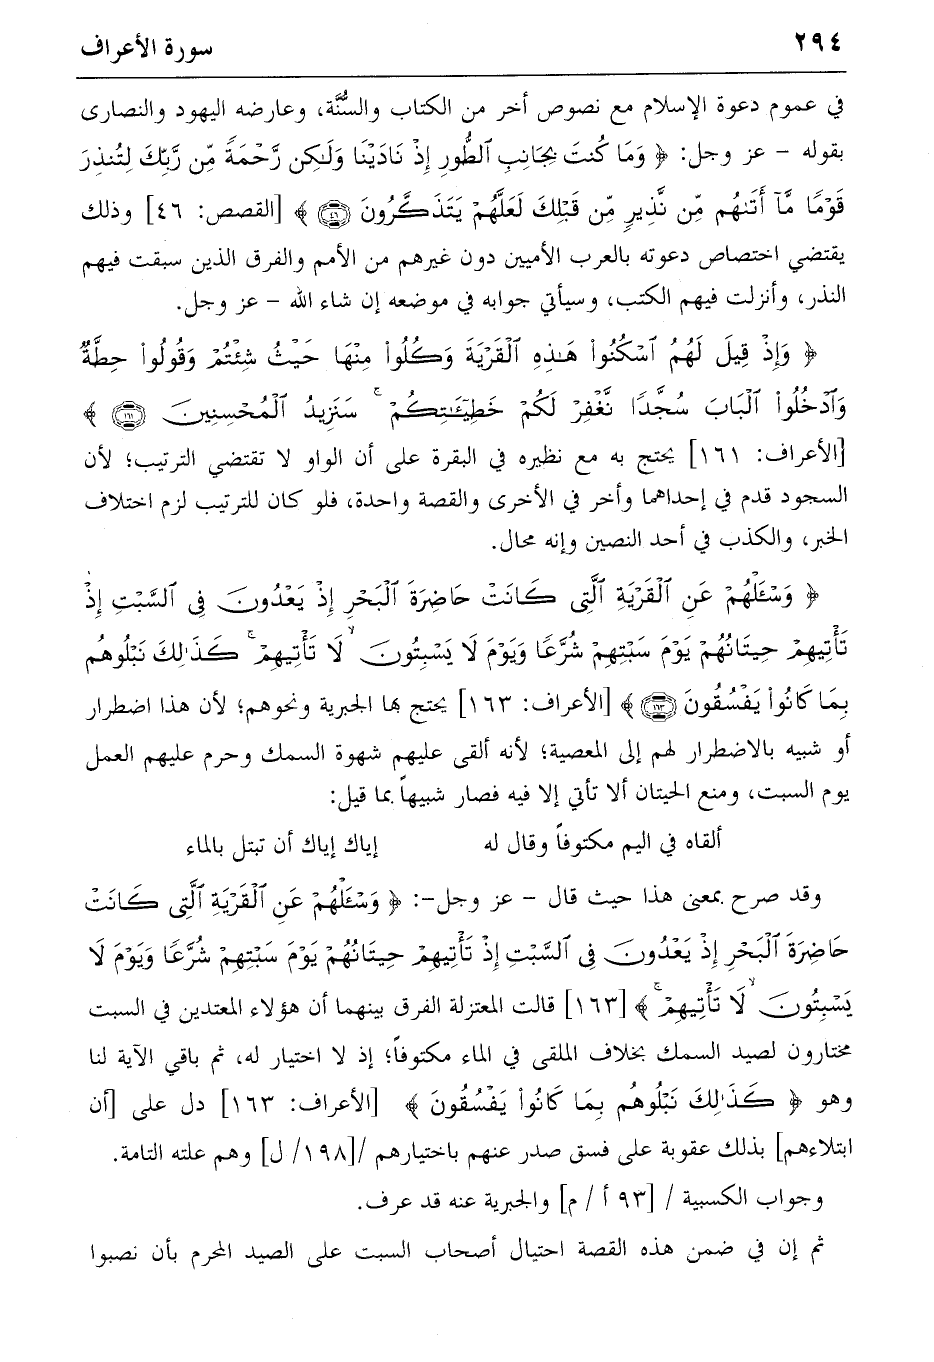 ٢٩٤ سورة الأعراف
في عموم دعوة الإسلام مع نصوص أخر من الكتاب والسُّنَّة، وعارضه اليهود والنصارى
بقوله - عز وجل: ﴿ وَمَا كُنتَ بِجَانِبِ ٱلطُّورِ إِذْ نَادَيْنَا وَلَٰكِن رَّحْمَةً مِّن رَّبِّكَ لِتُنذِرَ
قَوْمًا مَّآ أَتَىٰهُم مِّن نَّذِيرٍ مِّن قَبْلِكَ لَعَلَّهُمْ يَتَذَكَّرُونَ ٤٦ ﴾ [القصص: ٤٦] وذلك
يقتضي اختصاص دعوته بالعرب الأميين دون غيرهم من الأمم والفرق الذين سبقت فيهم
النذر، وأنزلت فيهم الكتب، وسيأتي جوابه في موضعه إن شاء الله - عز وجل.
﴿ وَإِذْ قِيلَ لَهُمُ ٱسْكُنُوا۟ هَٰذِهِ ٱلْقَرْيَةَ وَكُلُوا۟ مِنْهَا حَيْثُ شِئْتُمْ وَقُولُوا۟ حِطَّةٌ
وَٱدْخُلُوا۟ ٱلْبَابَ سُجَّدًا نَّغْفِرْ لَكُمْ خَطِيٓـَٰٔتِكُمْ ۚ سَنَزِيدُ ٱلْمُحْسِنِينَ ١٦١ ﴾
[الأعراف: ١٦١] يحتج به مع نظيره في البقرة على أن الواو لا تقتضي الترتيب؛ لأن
السجود قدم في إحداهما وأخر في الأخرى والقصة واحدة، فلو كان للترتيب لزم اختلاف
الخبر، والكذب في أحد النصين وإنه محال.
﴿ وَسْـَٔلْهُمْ عَنِ ٱلْقَرْيَةِ ٱلَّتِى كَانَتْ حَاضِرَةَ ٱلْبَحْرِ إِذْ يَعْدُونَ فِى ٱلسَّبْتِ إِذْ
تَأْتِيهِمْ حِيتَانُهُمْ يَوْمَ سَبْتِهِمْ شُرَّعًا وَيَوْمَ لَا يَسْبِتُونَ ۙ لَا تَأْتِيهِمْ ۚ كَذَٰلِكَ نَبْلُوهُم
بِمَا كَانُوا۟ يَفْسُقُونَ ١٦٣ ﴾ [الأعراف: ١٦٣] يحتج بها الجبرية ونحوهم؛ لأن هذا اضطرار
أو شبيه بالاضطرار لهم إلى المعصية؛ لأنه ألقى عليهم شهوة السمك وحرم عليهم العمل
يوم السبت، ومنع الحيتان ألا تأتي إلا فيه فصار شبيهاً بما قيل:
ألقاه في اليم مكتوفاً وقال له إياك إياك أن تبتل بالماء
وقد صرح بمعنى هذا حيث قال - عز وجل-: ﴿ وَسْـَٔلْهُمْ عَنِ ٱلْقَرْيَةِ ٱلَّتِى كَانَتْ
حَاضِرَةَ ٱلْبَحْرِ إِذْ يَعْدُونَ فِى ٱلسَّبْتِ إِذْ تَأْتِيهِمْ حِيتَانُهُمْ يَوْمَ سَبْتِهِمْ شُرَّعًا وَيَوْمَ لَا
يَسْبِتُونَ ۙ لَا تَأْتِيهِمْ ۚ ﴾ [١٦٣] قالت المعتزلة الفرق بينهما أن هؤلاء المعتدين في السبت
مختارون لصيد السمك بخلاف الملقى في الماء مكتوفاً؛ إذ لا اختيار له، ثم باقي الآية لنا
وهو ﴿ كَذَٰلِكَ نَبْلُوهُم بِمَا كَانُوا۟ يَفْسُقُونَ ﴾ [الأعراف: ١٦٣] دل على [أن
ابتلاءهم] بذلك عقوبة على فسق صدر عنهم باختيارهم /[١٩٨/ ل] وهم علته التامة.
وجواب الكسبية / [٩٣ أ / م] والجبرية عنه قد عرف.
ثم إن في ضمن هذه القصة احتيال أصحاب السبت على الصيد المحرم بأن نصبوا